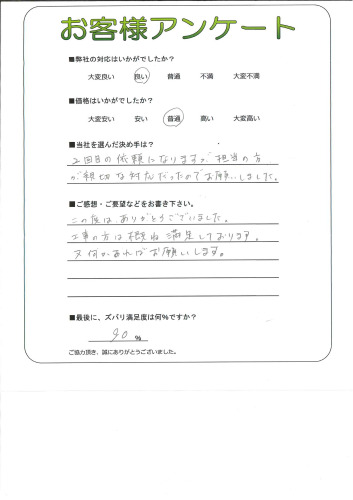 お客様アンケート
■弊社の対応はいかがでしたか？
大変良い　良い　普通　不満　大変不満
■価格はいかがでしたか？
大変安い　安い　普通　高い　大変高い
■当社を選んだ決め手は？
2回目の依頼になりますが、担当の方
が親切な対応だったのでお願いしました。
■ご感想・ご要望などをお書き下さい。
この度は、ありがとうございました。
工事の方は概ね満足しております。
又何かあればお願いします。
■最後に、ズバリ満足度は何％ですか？
90 ％
ご協力頂き、誠にありがとうございました。